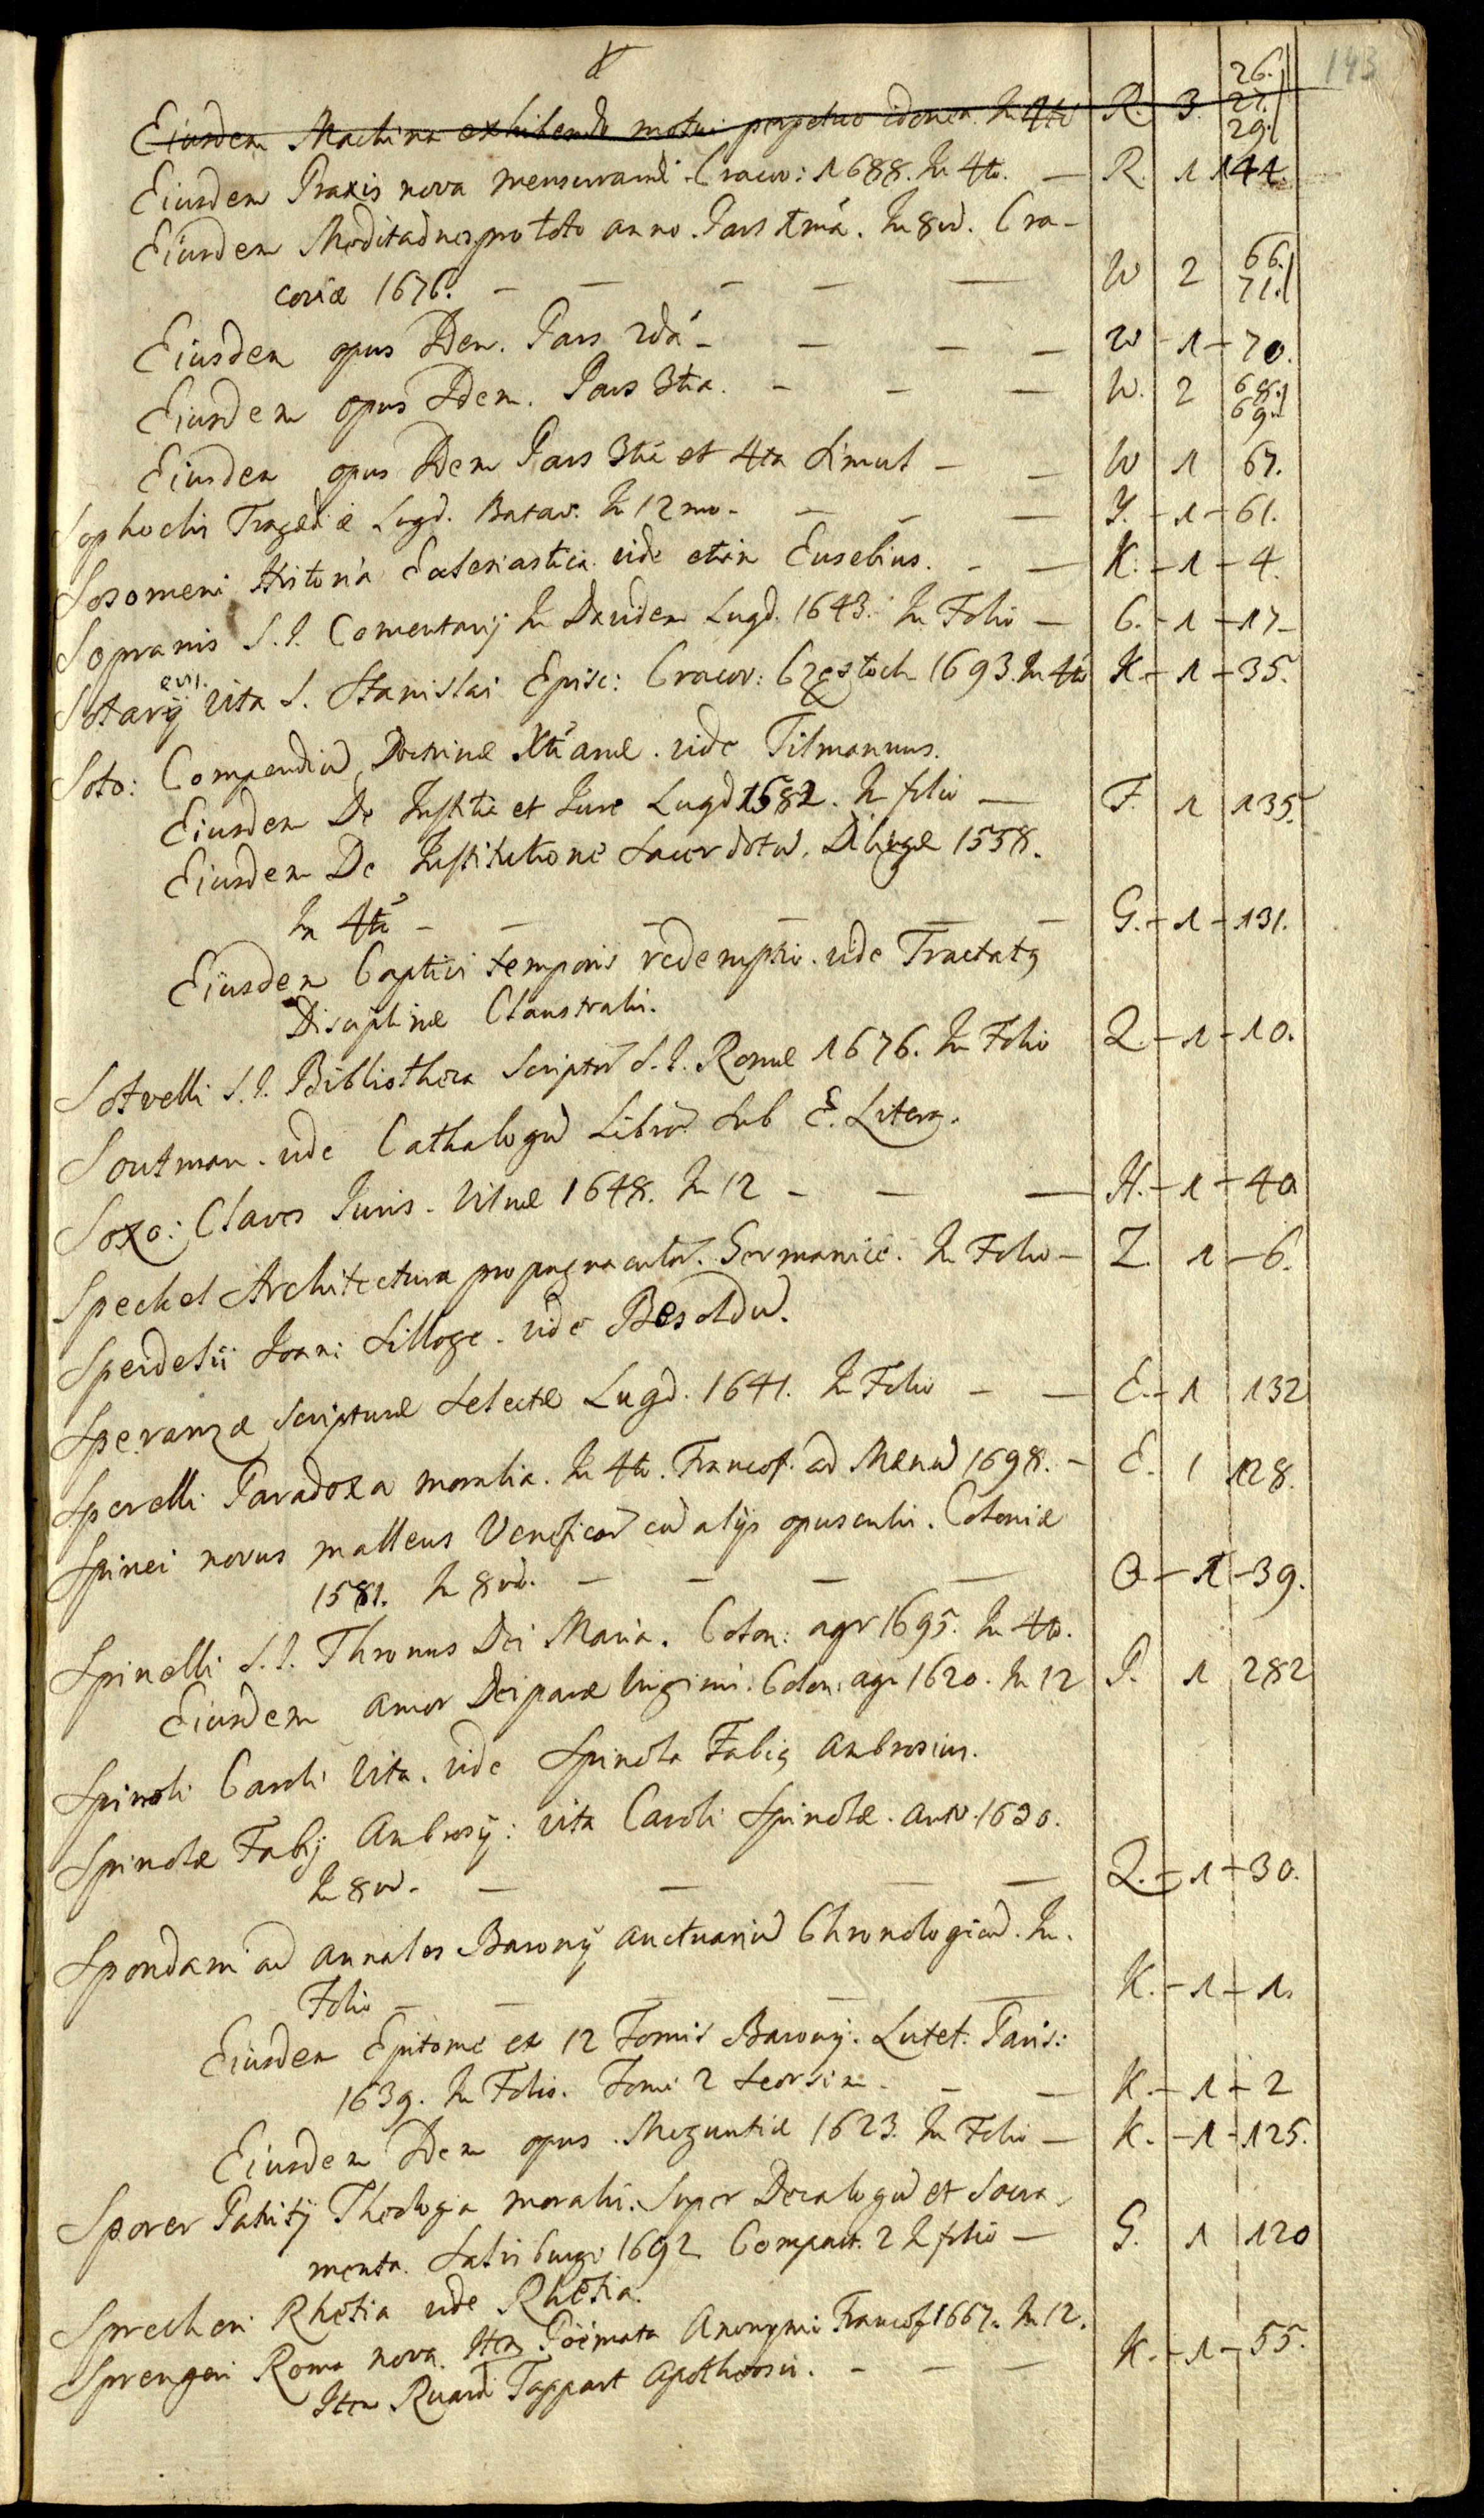 143
Eiusdem Machina exhibendo motui perpetuo idonea. In 4to R. 3. 26. 27. 29.
Eiusdem Praxis nova mensurandi. Cracov: 1688. In 4to. — R. 1 144.
Eiusdem Meditadnes pro toto anno. Pars 1ma. In 8vo. Cra-
coviæ 1676. — — — — — W 2 66. 71.
Eiusdem opus Idem. Pars 2da — — — — W - 1 - 70.
Eiusdem opus Idem. Pars 3tia. — — — W. 2 68. 69.
Eiusdem opus Idem Pars 3tia et 4ta simul — — W 1 67.
Sophoclis Tragædiæ Lugd. Batav. In 12mo. — — — Y. - 1 - 61.
Sosomeni Historia Eclesiastica. vide etiam Eusebius. — — K. - 1 - 4.
Sopranis S. I. Comentarij In Davidem Lugd. 1643. In Folio — C. - 1 - 17 -
Sotarÿ vita S. Stanislai Episc: Cracov: Częstoch 1693. In 4to K - 1 - 35.
Soto: Compendiu Doctrinæ Xtianæ. vide Titmannus.
Eiusdem De Justitia et Jure Lugd 1582. In folio — F. 1 135.
Eiusdem De Institutione Sacerdotu. Dilingæ 1558.
In 4to — — — — — — G. - 1 - 131.
Eiusdem Captivi temporis redemptio. vide Tractatq
Disciplinæ Claustralis.
Sotvelli S. I. Bibliotheca Scriptor S. I. Romæ 1676. In Folio Q - 1 - 10.
Soutman. vide Cathalogu Libror sub E. Litera.
Soxo: Claves Juris. Vilnæ 1648. In 12 — — — H. - 1 - 40
Speckel Architectura propugnaculor. Germanice. In Folio — Z 1 - 6.
Speidelii Joani Silloge. vide Besoldu.
Speranza Scripturæ Selectæ Lugd. 1641. In Folio — — E. - 1 132
Sperelli Paradoxa moralia. In 4to. Francof. ad Mænu 1698. — E. 1 128.
Spinei novus malleus Veneficar cu alijs opusculis. Coloniæ
1581. In 8vo. — — — — O - 1 - 39.
Spinelli S. I. Thronus Dei Maria. Colon: agr 1695. In 4to.
Eiusdem amor Deiparæ Virginis. Colon: agr 1620. In 12 P. 1 282
Spinoli Caroli Vita. vide Spinola Fabiq Ambrosius.
Spinolæ Fabij Ambrosij: vita Caroli Spinolæ. Antv. 1630.
In 8vo. — — — — Q. - 1 - 30.
Spondani ad annales Baronij auctuariu Chronologicu. In.
Folio — — — — — K. - 1 - 1.
Eiusdem Epitome ex 12 Tomis Baronij. Lutet: Paris:
1639. In Folio. Tomi 2 seorsim. — — K. - 1 - 2
Eiusdem Idem opus. Moguntiæ 1623. In Folio — K. - 1 - 125.
Sporer Patritij Theologia moralis. Super Decalogu et Sacra-
menta. Salisburgi 1692 Compact. 2 In folio — G. 1 120
Sprecheri Rhetia vide Rhetia.
Sprengeri Roma nova. Item Poemata Anonymi Francof 1667. In 12.
Item Ruardi Tappart apotheosis. — — — K. - 1 - 55.